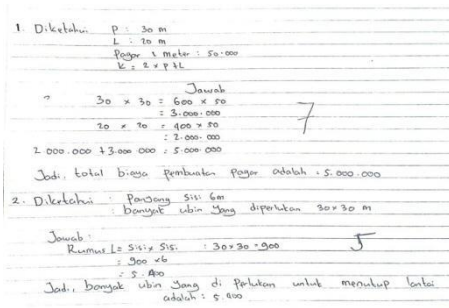 1. Diketahui P : 30 m
L : 20 m
Pagar 1 meter : 50.000
K = 2 x P + L
Jawab
30 x 30 = 600 x 50
= 3.000.000
20 x 20 = 400 x 50
= 2.000.000
2.000.000 + 3.000.000 = 5.000.000
7
Jadi, total biaya pembuatan pagar adalah = 5.000.000
2. Diketahui : Panjang Sisi 6m
: banyak ubin yang diperlukan 30x30 m
Jawab :
Rumus L = Sisi x Sisi : 30x30 = 900
= 900 x 6
= 5.400
5
Jadi, banyak ubin yang di perlukan untuk menutup lantai
adalah = 5.400